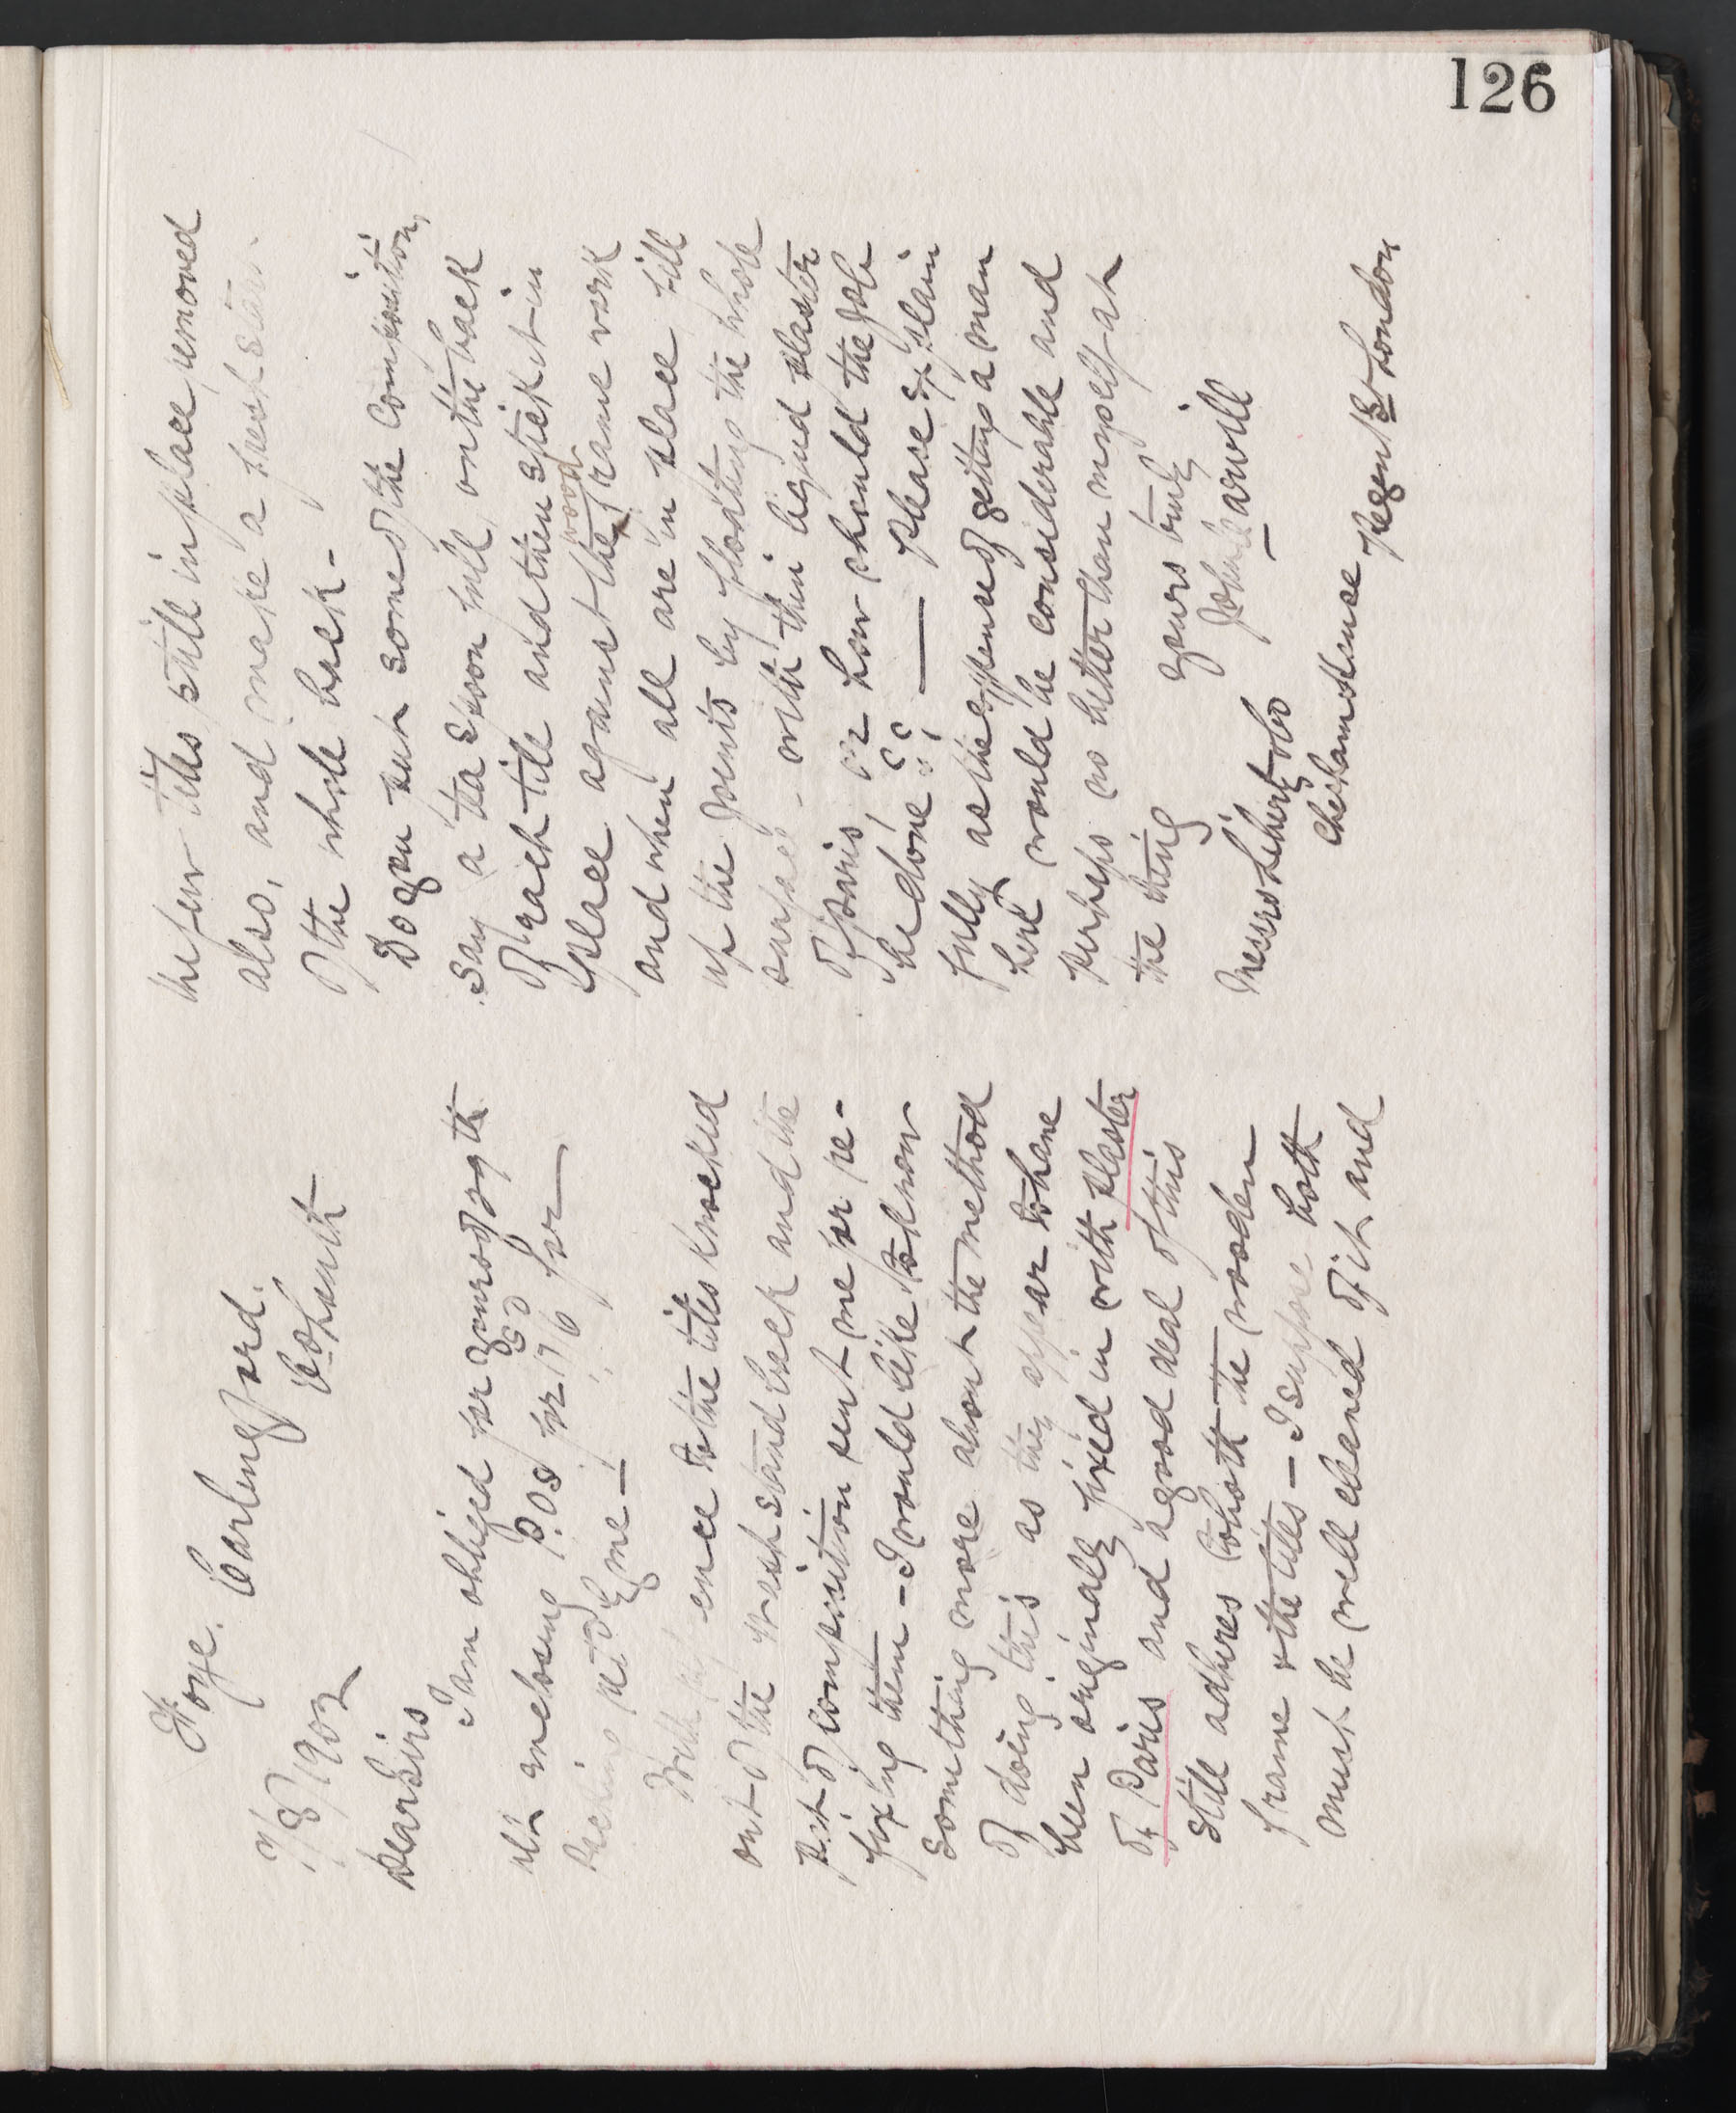 126
Foye. Carlingford.
Co Louth
7/8/1902
Dear Sirs
I am obliged for yours of 2nd
ult enclosing P.O.s for 17/6 for
me —
With reference to the tiles knocked
out of the wash stand back and the
pot of composition sent me for re-
fixing them - I would like to know
something more about the method
of doing this as they appear to have
been originally fixed in with plaster
of Paris and a good deal of this
still adheres to both the wooden
frame & the tiles — I suppose both
must be well cleaned of it and
the few tiles still in place removed
also, and make a fresh start
of the whole back -
Do you put some of the composition,
say a tea spoon full, on the back
of each tile and then stick it in
place against the wood frame work
and when all are in place fill
up the joints by floating the whole
surface - with thin liquid plaster
of Paris, or how should the job
be done ?? — Please explain
fully as the expense of getting a man
here would be considerable and
perhaps no better than myself at
the thing
Yours truly
John
Messrs Liberty & Co
Chesham House Regent St London